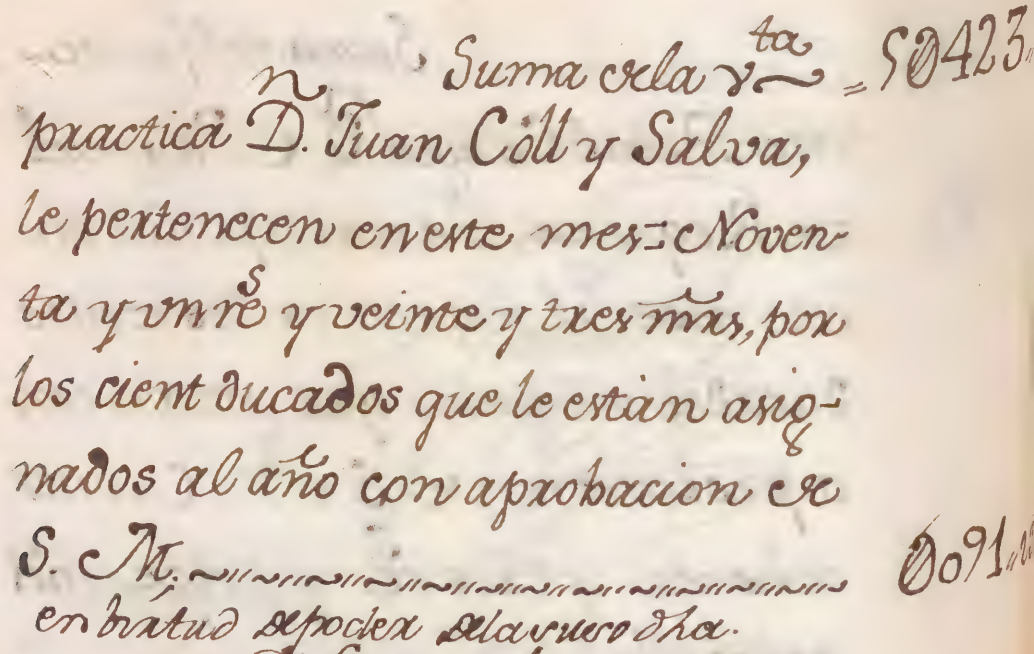 Suma dela vta = 5Ø423
practica Dn. Juan Cóll y Salva,
le pertenecen en este mes = Noven-
ta y vn rs y veinte y tres mrs, por
los cient ducados que le están asig-
nados al año con aprobacion de
S. M. Ø091
en birtud de poder dela suso dha.